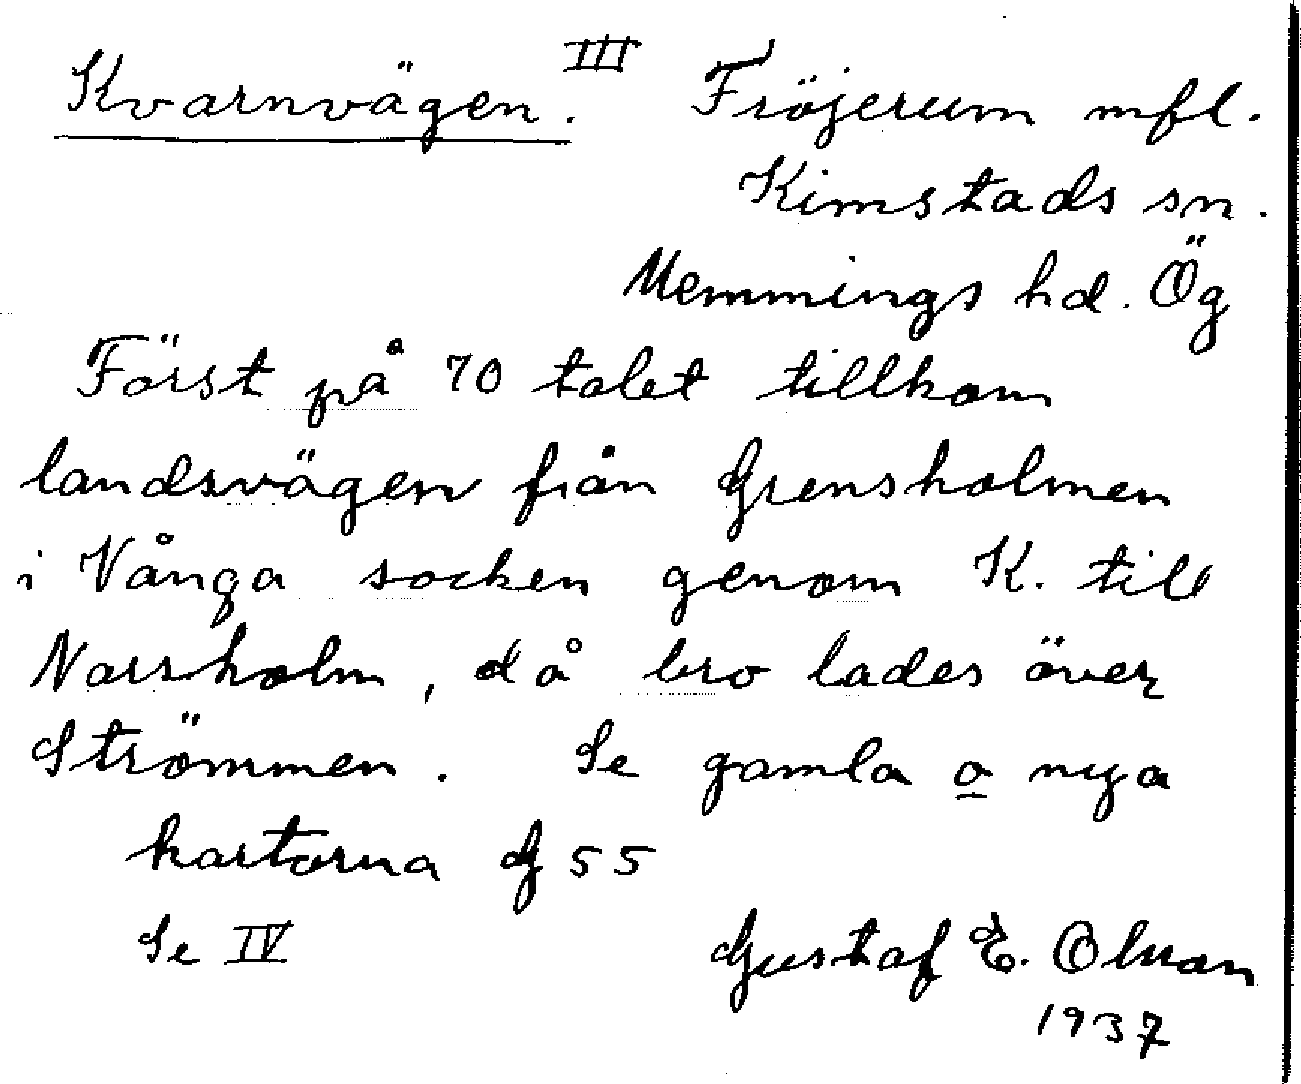 Kvarnvägen. III Fröjerum mfl.
Kimstads sn.
Memmings hd. Ög
Först på 70 talet tillkom
landsvägen från Grensholmen
i Vånga socken genom K. till
Norsholm, då bro lades över
Strömmen. Se gamla o nya
kartorna G 55
Se IV Gustaf E. Olsson
1937